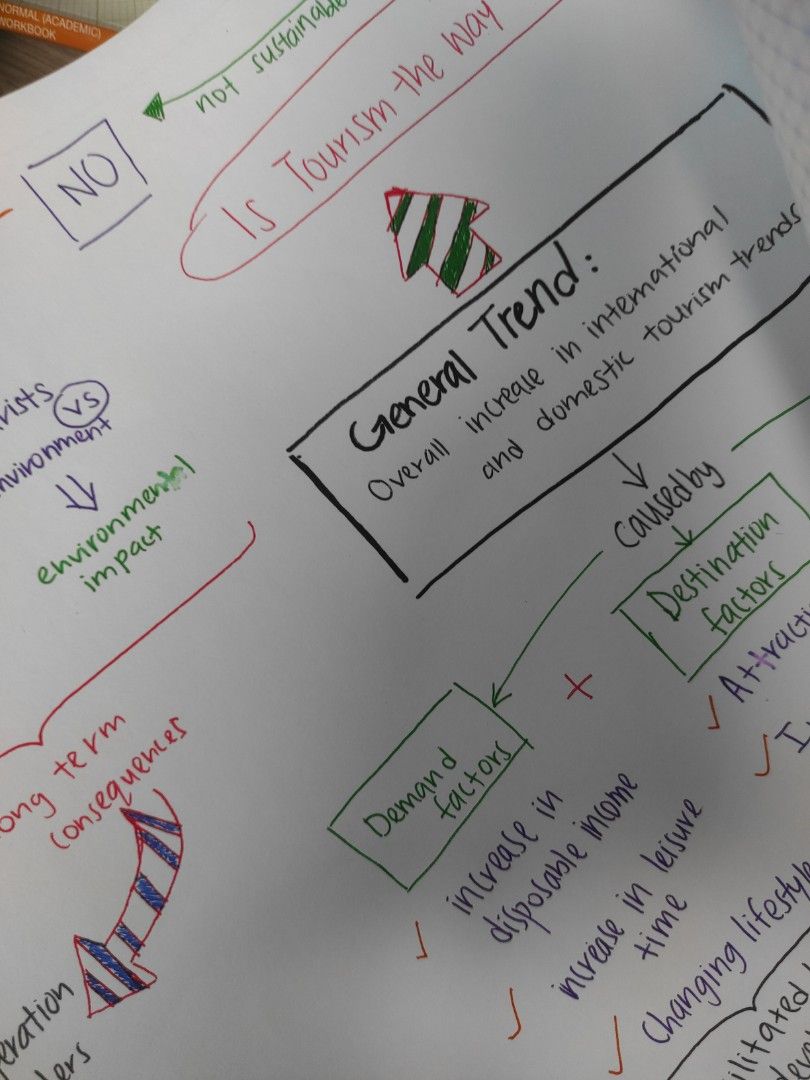 NORMAL (ACADEMIC)
WORKBOOK
not sustainable
NO
Is Tourism the way
General Trend:
Overall increase in international
and domestic tourism trends
VS
environmental
impact
caused by
Destination
factors
Demand
factors
increase in
disposable income
increase in leisure
time
Changing lifestyle
term
consequences